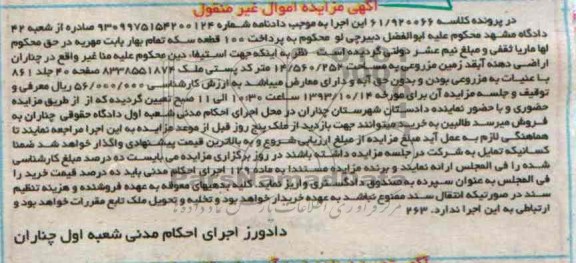 آگهی مزایده اموال غیر منقول
در پرونده کلاسه ۶۱/۹۲۰۰۶۶ این اجرا به موجب دادنامه شماره ۹۳۰۹۹۷۵۱۵۴۲۰۰۱۲۴ صادره از شعبه ۴۲
دادگاه مشهد محکوم علیه ابوالفضل دبیرچی لو محکوم به پرداخت ۱۰۰ قطعه سکه تمام بهار بابت مهریه در حق محکوم
لها ماریا ثقفی و مبلغ نیم عشر دولتی گردیده است نظر به اینکه جهت استیفاء دین محکوم علیه متا غیر واقع در چناران
اراضی دهنه آبقد زمین مزروعی به مساحت ۱۴/۵۶۰/۲۵۴ متر کد پستی ملک ۸۳۳۸۵۵۱۸۷۴ صفحه ۴۰ جلد ۸۶۱
با عنیات به مزروعی بودن و بدون حق آبه و دارای معارض میباشد به ارزش کارشناسی ۵۶/۰۰۰/۰۰۰ ریال معرفی و
توقیف و جلسه مزایده آن برای مورخه ۱۳۹۳/۱۰/۱۴ ساعت ۱۰:۳۰ الی ۱۱ صبح تعیین گردیده که از از طریق مزایده
حضوری و با حضور نماینده دادستان شهرستان چناران در محل اجرای احکام مدنی شعبه اول دادگاه حقوقی چناران به
فروش میرسد طالبین به خرید میتوانند جهت بازدید از ملک پنج روز قبل از موعد مزایده به این اجرا مراجعه نمایند تا
هماهنگی لازم به عمل آید مبلغ مزایده از مبلغ ارزیابی شروع و به بالاترین قیمت پیشنهادی واگذار خواهد شد ضمنا
کسانیکه تمایل به شرکت در جلسه مزایده داشته باشند در روز برگزاری مزایده می بایست ده درصد مبلغ کارشناسی
شده را فی المجلس ارائه نمایند و برنده مزایده مستندا به ماده ۱۲۹ اجرای احکام مدنی باید ده درصد قیمت خرید را
فی المجلس به عنوان سپرده به صندوق دادگستری واریز نماید. کلیه بدهیهای معوقه به عهده فروشنده و هزینه تنظیم
سند در صورتیکه انتقال سند ممنوع نباشد به عهده خریدار خواهد بود و تخلیه و تحویل ملک تابع مقررات خواهد بود و
ارتباطی به این اجرا ندارد. ۲۶۳
دادورز اجرای احکام مدنی شعبه اول چناران